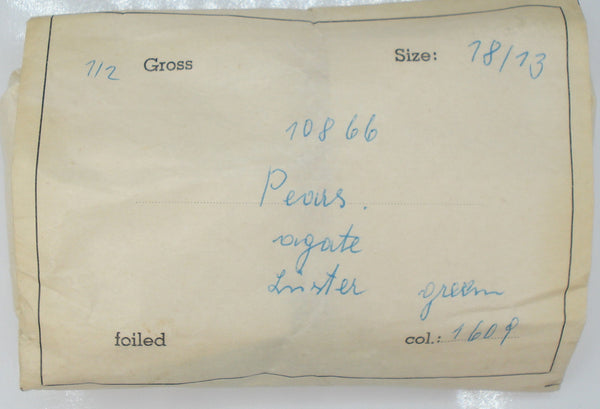 1/2 Gross Size: 18/13
10866
Pears.
agate
Lüster green
foiled col.: 1609